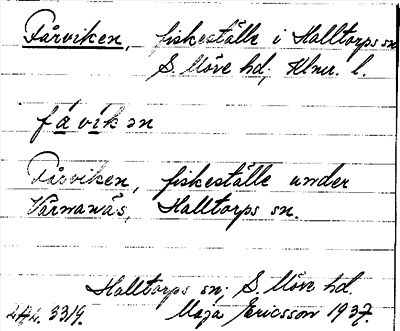 Fårviken, fiskeställe i Halltorps sn
S. Möre hd; Klmr. l.
fåvikən
Fårviken, fiskeställe under
Värnanäs, Halltorps sn.
Halltorps sn; S. Möre hd.
3319. Maja Ericsson 1937.